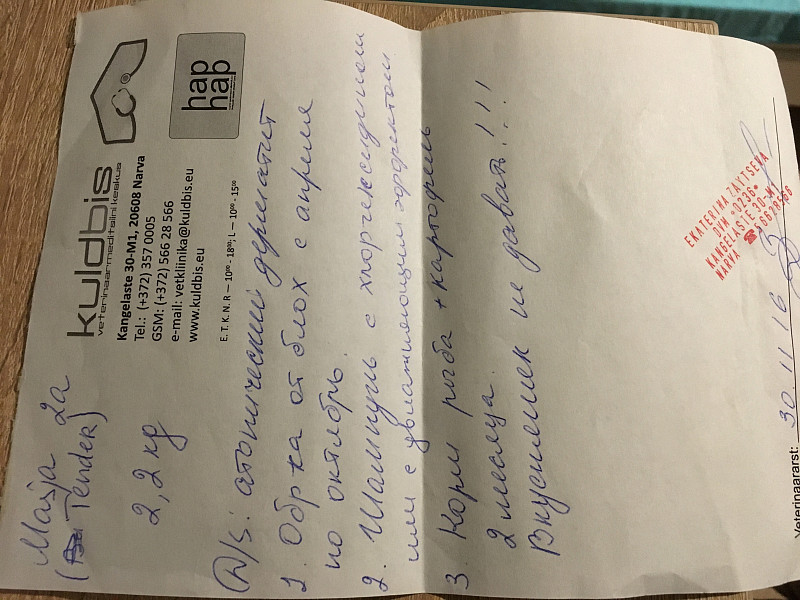 kuldbis
veterinaarmeditsiini keskus
hap
hap
Kangelaste 30-M1, 20608 Narva
Tel.: (+372) 357 0005
GSM: (+372) 566 28 566
e-mail: vetkliinika@kuldbis.eu
www.kuldbis.eu
E. T. K. N. R — 10⁰⁰ - 18⁰⁰; L — 10⁰⁰ - 15⁰⁰
Masja 2a
(Tender)
2,2 кg
D/s: атопический дерматит
1. Обр-ка от блох с апреля
по октябрь.
2. Шампунь с хлоргексидином
или с увлажняющим эффектом
3. Корм рыба + картофель
2 месяца.
Вкусняшек не давать!!!
EKATERINA ZAYTSEVA
DVM *0236*
KANGELASTE 30-M1
NARVA ☎ 56628566
30. 11 16
Veterinaararst: